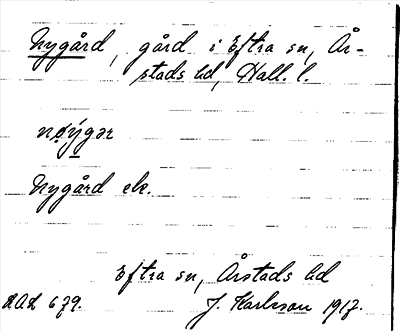 Nygård, gård i Eftra sn, År-
stads hd, Hall. l.
nøýgər
Nygård ek.
Eftra sn, Årstads hd
DAL 679. J. Karlsson 1917.